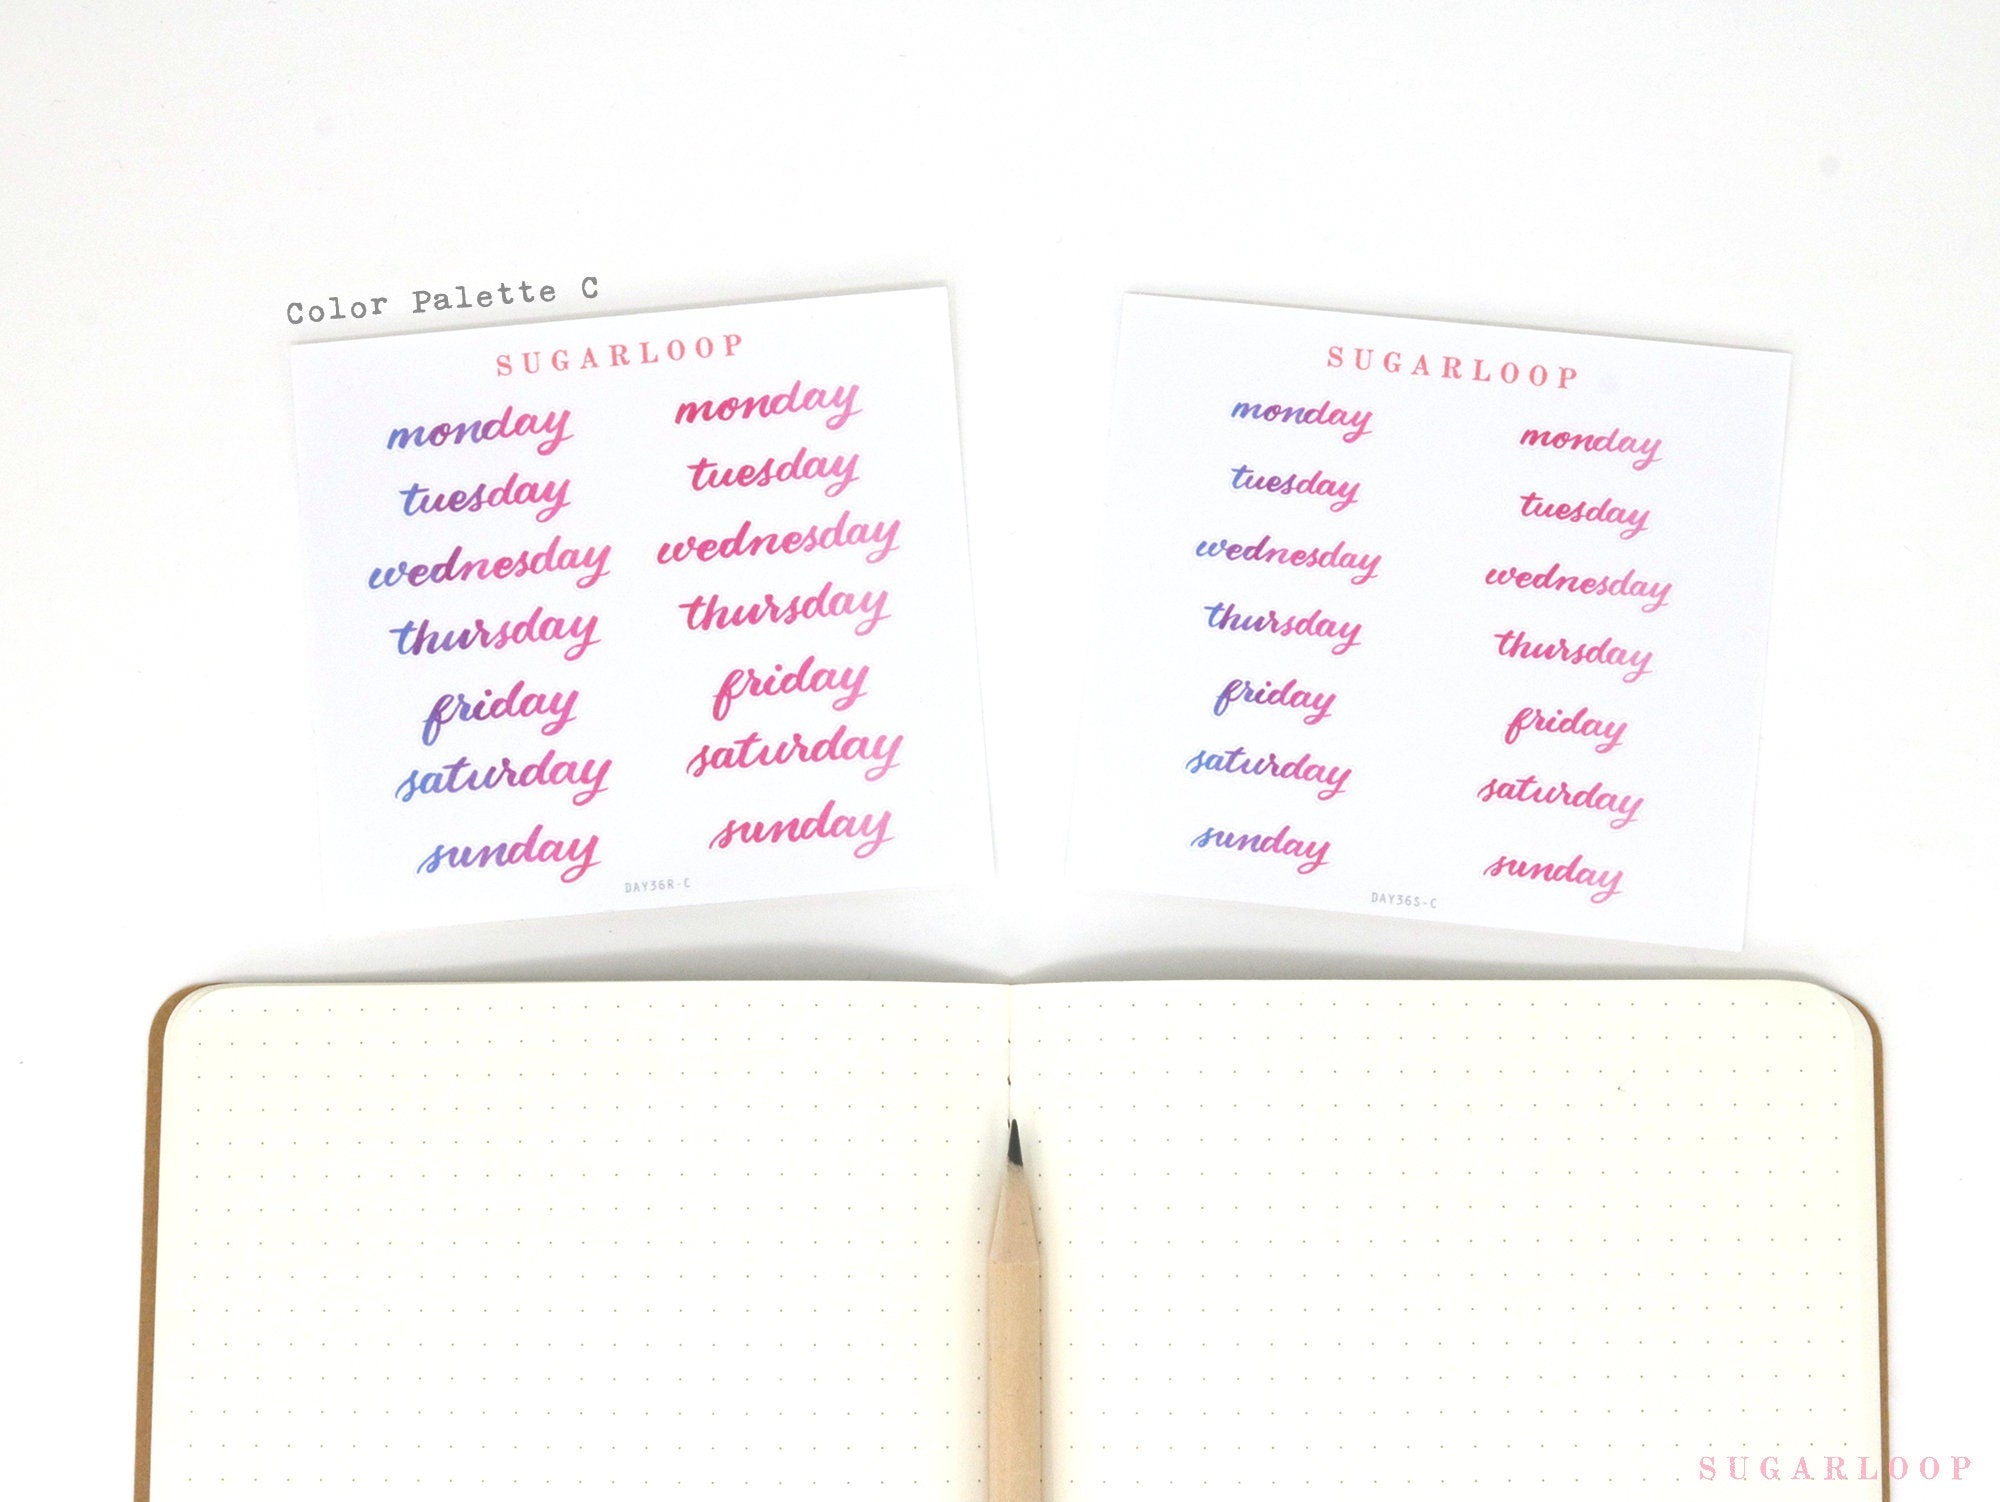 Color Palette C
SUGARLOOP
monday monday
tuesday tuesday
wednesday wednesday
thursday thursday
friday friday
saturday saturday
sunday sunday
DAY36R-C
SUGARLOOP
monday monday
tuesday tuesday
wednesday wednesday
thursday thursday
friday friday
saturday saturday
sunday sunday
DAY36S-C
SUGARLOOP